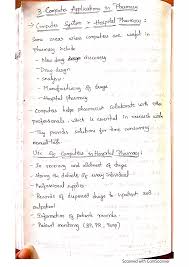 3. Computer Applications in Pharmacy
→ Computer System in Hospital Pharmacy :
Some areas where computers are useful in
pharmacy include
- New drug discovery
- Drug design
- analysis
- Manufacturing of drugs
- Hospital Pharmacy
- Computers helps pharmacist collaborate with other
professionals, which is essential in research work
- They provide solutions for time consuming
Use of Computers in Hospital Pharmacy :
- In receiving and allotment of drugs
- Storing the details of every individual
- Professional supplies
- Records of dispensed drugs to inpatient and
outpatient
- Information of patients records
- Patient monitoring (BP, PR, Temp)
Scanned with CamScanner